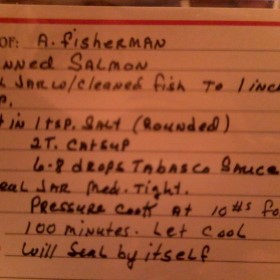 OF: A. fisherman
nned Salmon
Jar w/cleaned fish To 1 inc
P.
t in 1 tsp. Salt (Rounded)
2T. Catsup
6-8 drops Tabasco Sauce
eal Jar Med. Tight.
Pressure Cook at 10#s fo
100 minutes. Let Cool
Will Seal by itself